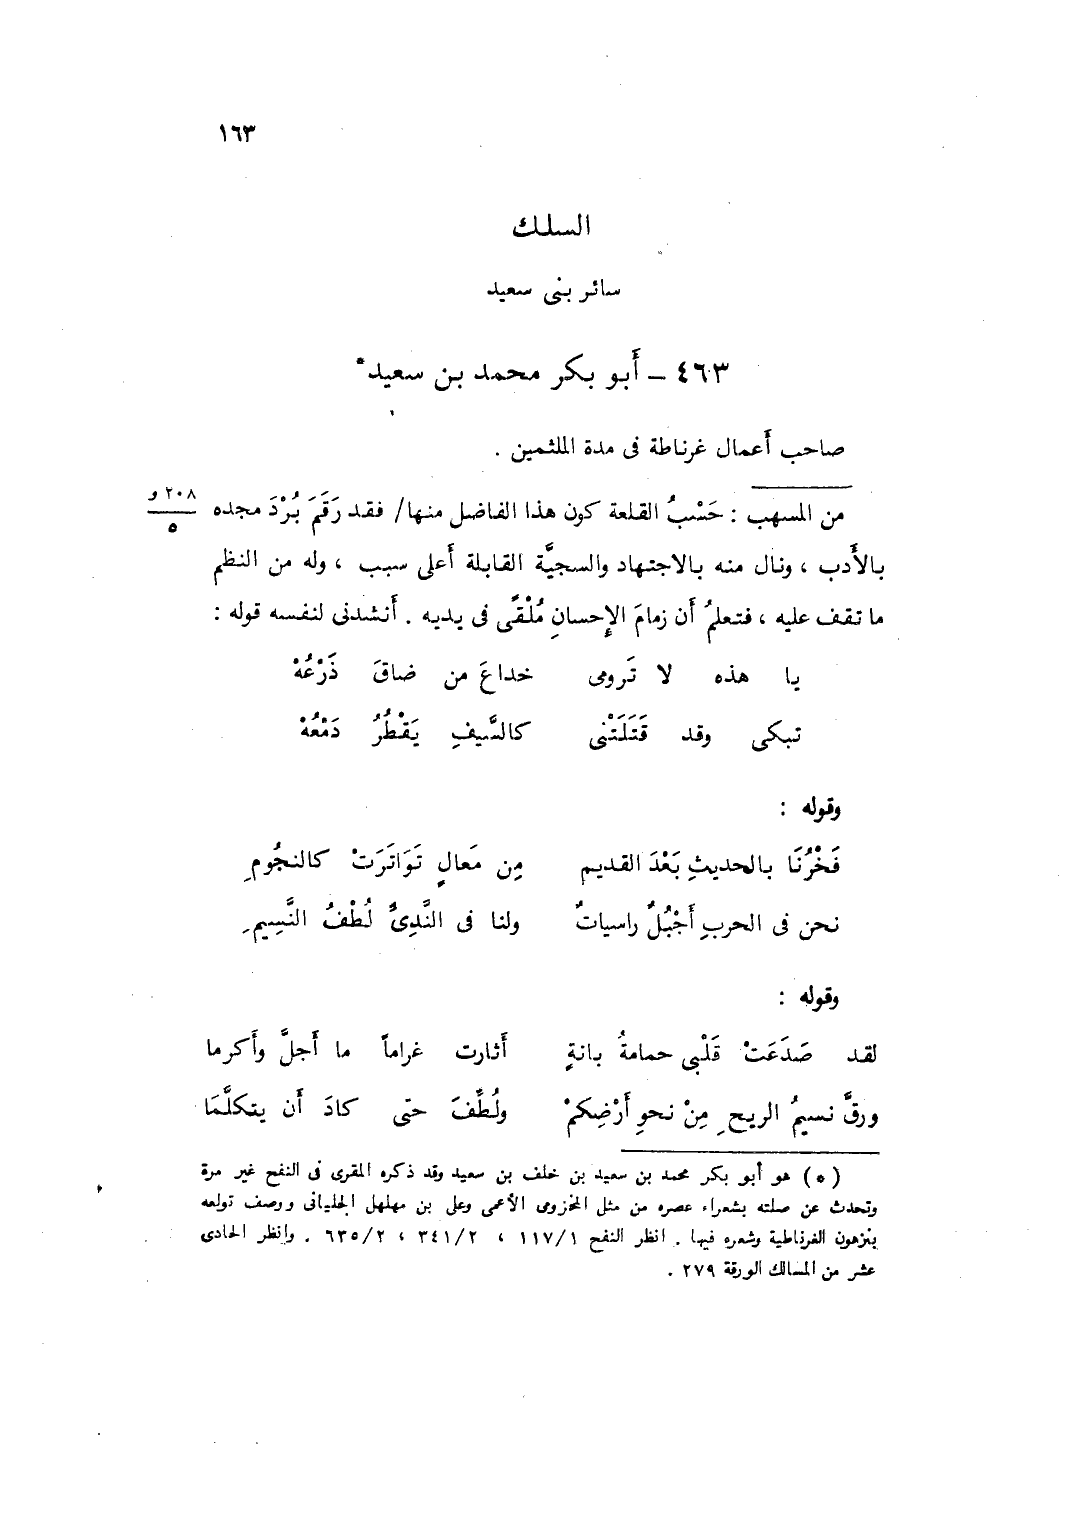 ١٦٣
السلك
سائر بنى سعيد
٤٦٣ ـ أَبو بكر محمد بن سعيد*
صاحب أَعمال غرناطة فى مدة الملثمين .
من المسهب : حَسْبُ القلعة كون هذا الفاضل منها/ فقد رَقَمَ بُرْدَ مجده
٢٠٨ و
٥
بالأَدب ، ونال منه بالاجتهاد والسجيَّة القابلة أَعلى سبب ، وله من النظم
ما تقف عليه ، فتعلمُ أَن زمامَ الإِحسانِ مُلْقًى فى يديه . أَنشدنى لنفسه قوله :
يا هذه لا تَرومى خداعَ من ضاقَ ذَرْعُهْ
تبكى وقد قَتَلَتْنى كالسَّيفِ يَقْطُرُ دَمْعُهْ
وقوله :
فَخْرُنَا بالحديثِ بَعْدَ القديم مِن مَعالٍ تَوَاتَرَتْ كالنجُومِ
نحن فى الحربِ أَجْبُلٌ راسياتٌ ولنا فى النَّدِىِّ لُطْفُ النَّسِيمِ
وقوله :
لقد صَدَعَتْ قَلْبى حمامةُ بانةٍ أَثارت غراماً ما أَجلَّ وأَكرما
ورقَّ نسيمُ الريحِ مِنْ نحوِ أَرْضِكمْ ولُطِّفَ حتى كادَ أَن يتكلَّمَا
(*) هو أبو بكر محمد بن سعيد بن خلف بن سعيد وقد ذكره المقرى فى النفح غير مرة
وتحدث عن صلته بشعراء عصره من مثل المخزومى الأعمى وعلى بن مهلهل الجليانى ووصف تولعه
بنزهون الغرناطية وشعره فيها . انظر النفح ١١٧/١ ، ٣٤١/٢ ، ٦٣٥/٢ . وانظر الحادى
عشر من المسالك الورقة ٢٧٩ .